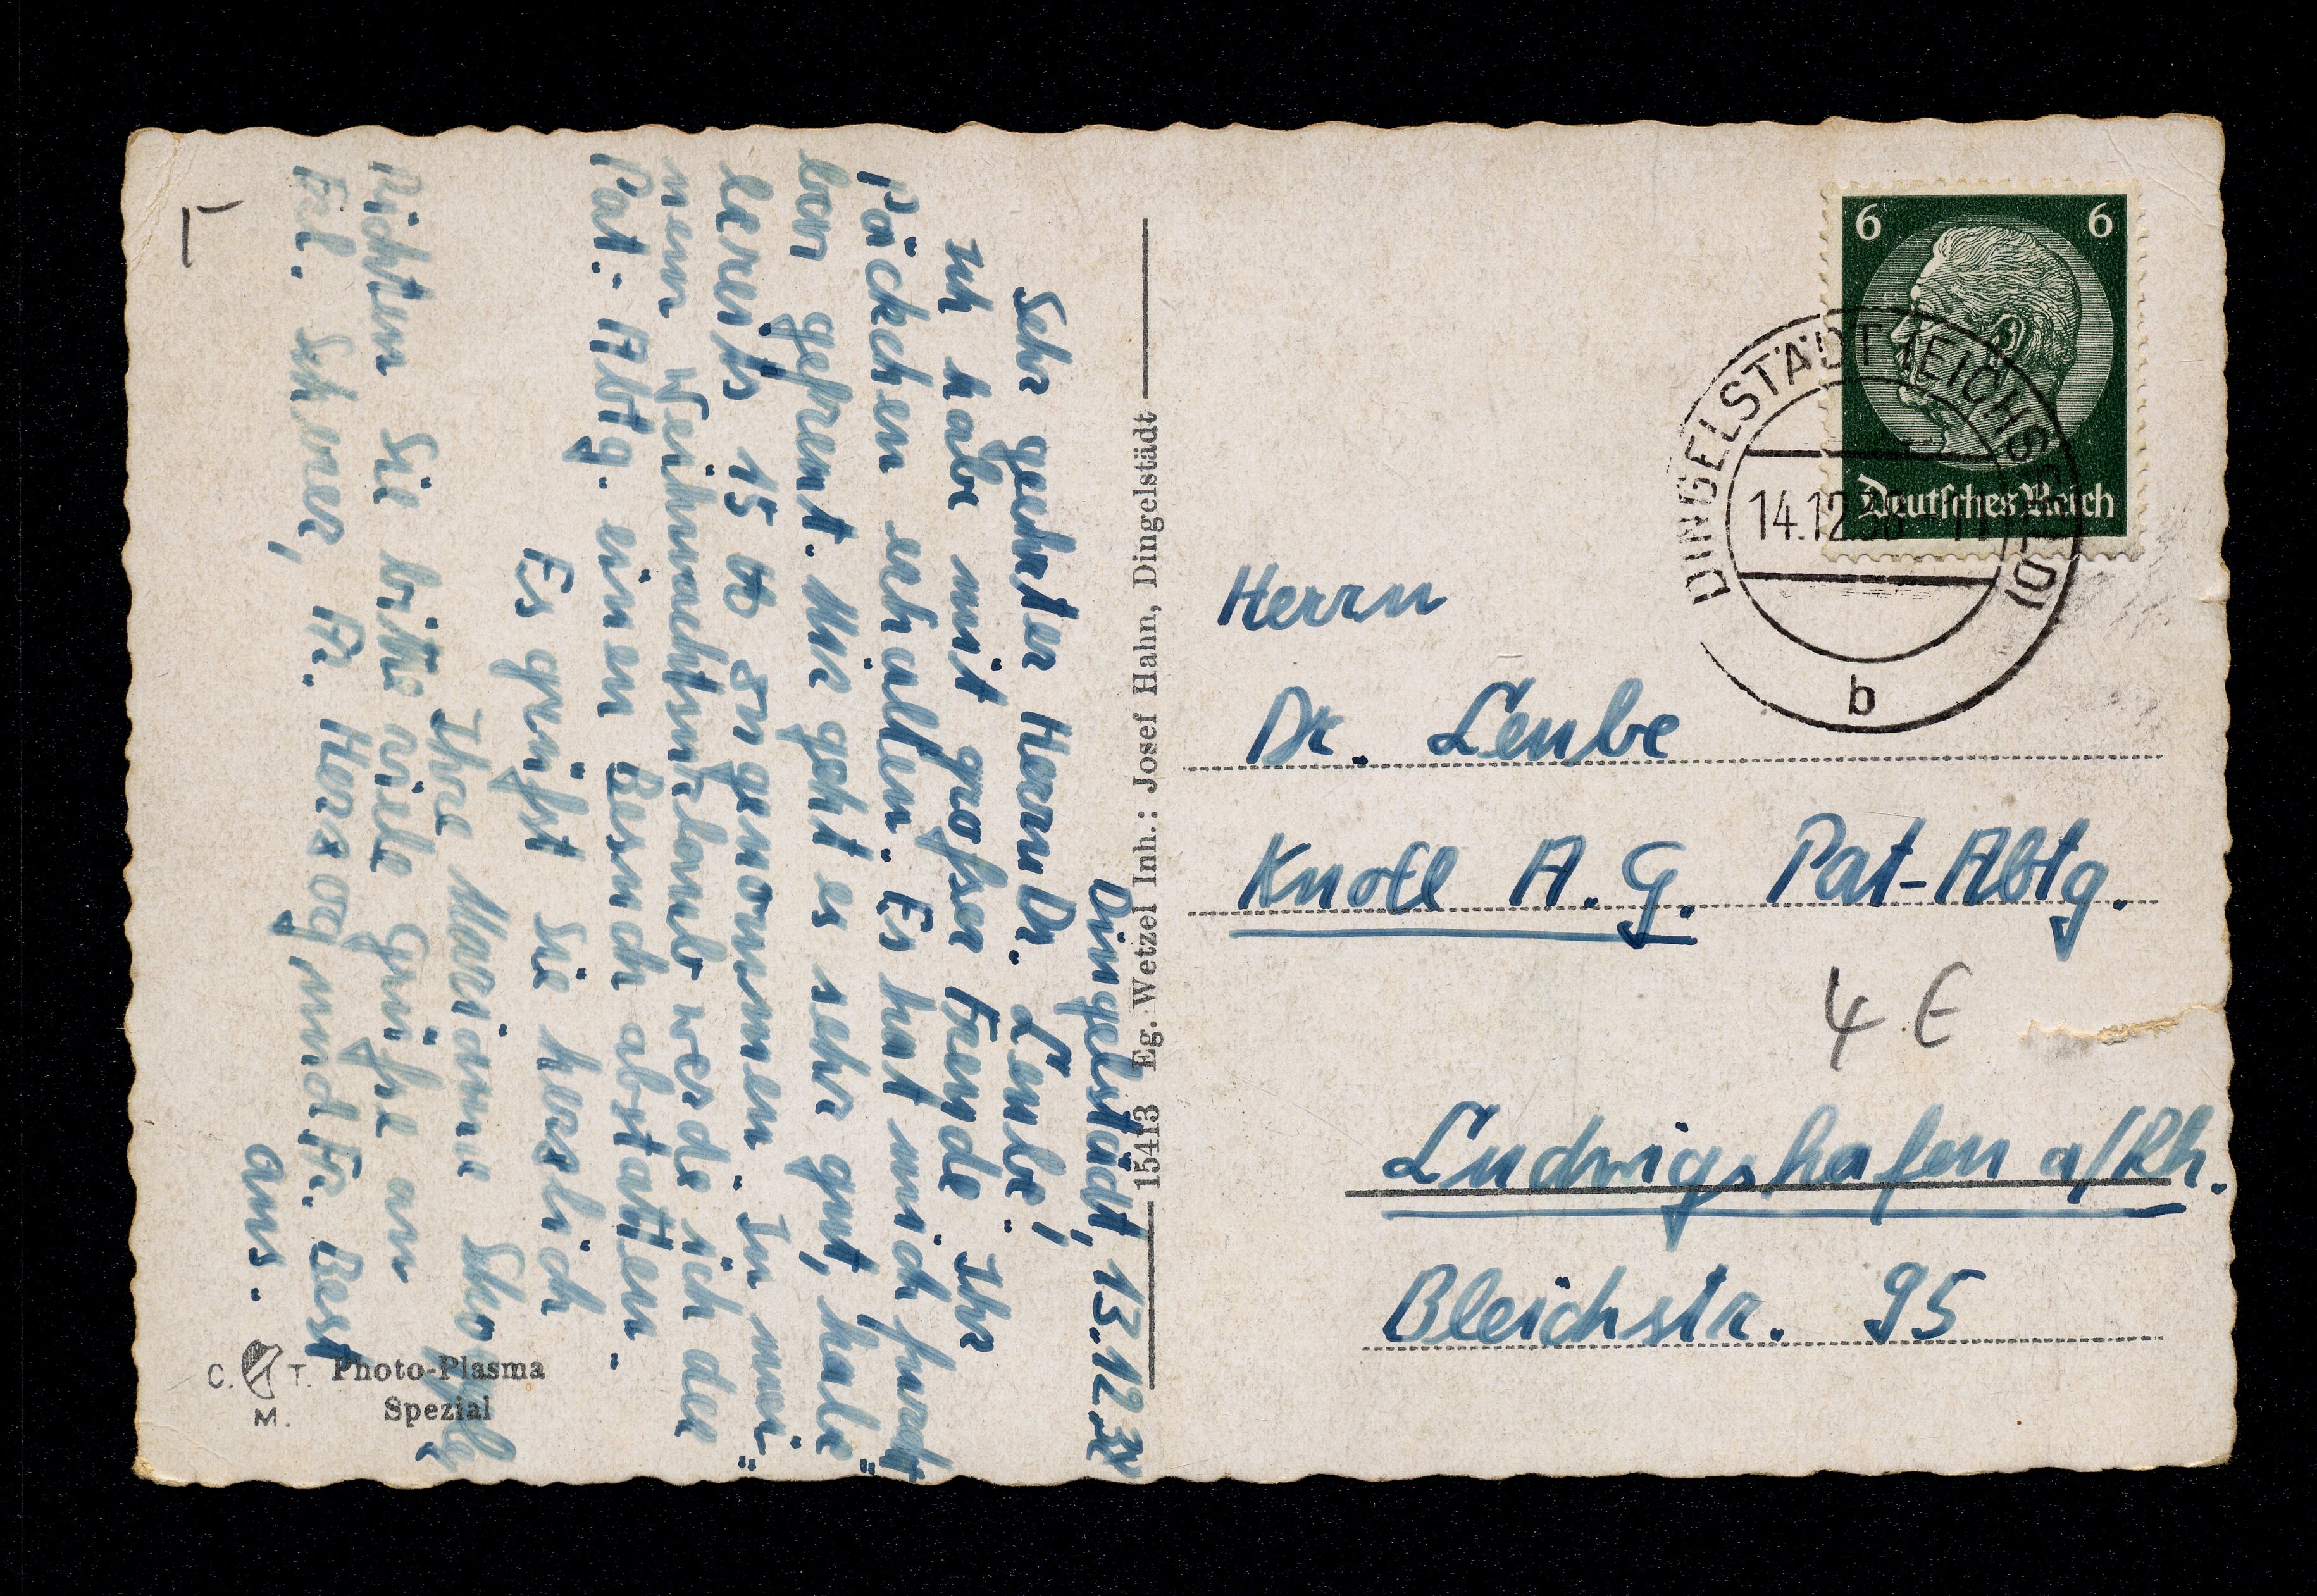 Dingelstädt, 13.12.38
Sehr geehrter Herrn Dr. Leube!
Ich habe mit grosser Freude Ihr
Päckchen erhalten. Es hat mich furcht-
bar gefreut. Mir geht es sehr gut, habe
bereits 15 tb zugenommen. In mei-
nem Weihnachtsurlaub werde ich der
Pat.-Abtg. einen Besuch abstatten.
Es grüßt Sie herzlich
Ihre Marianne
Richten Sie bitte viele Grüße an
Frl. Scherer, Fr. Herzog und Fr. Best
aus.
15413 Eg. Wetzel Inh.: Josef Hahn, Dingelstädt
C. T. M.
Photo-Plasma
Spezial
6 6
Deutsches Reich
DINGELSTÄDT (EICHSFELD)
14.12.38
b
Herrn
Dr. Leube
Knoll A. G. Pat-Abtg.
4 E
Ludwigshafen a/Rh.
Bleichstr. 95